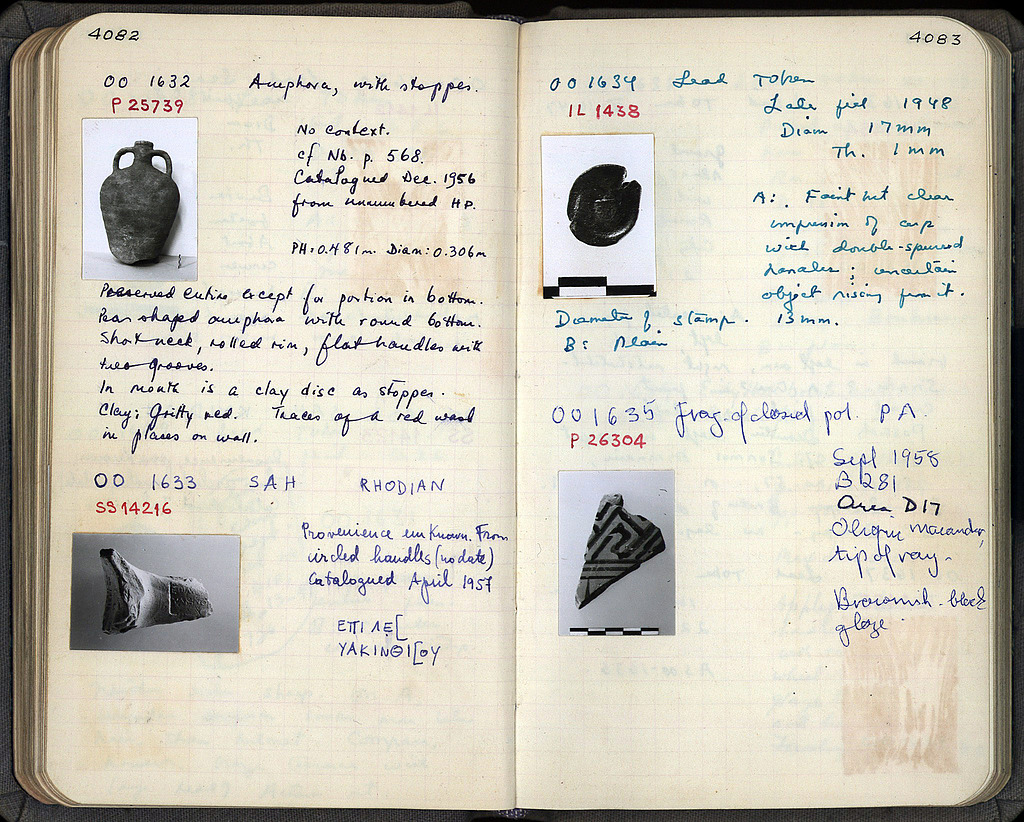 4082
OO 1632 Amphora, with stopper.
P 25739
No context.
cf Nb. p. 568.
Catalogued Dec. 1956
from unnumbered HP.
PH: 0.481m. Diam: 0.306m
Preserved entire except for portion in bottom.
Pear shaped amphora with round bottom.
Short neck, rolled rim, flat handles with
two grooves.
In mouth is a clay disc as stopper.
Clay: Gritty red. Traces of a red wash
in places on wall.
OO 1633 SAH RHODIAN
SS 14216
Provenience unknown. From
circled handles (no date)
Catalogued April 1957
ΕΠΙ ΛΕ[
ΥΑΚΙΝΘΙ[ΟΥ
4083
OO 1634 Lead Token
IL 1438
Late fill 1948
Diam 17mm
Th. 1mm
A: Faint but clear
impression of cup
with double-spurred
handles; uncertain
object rising from it.
Diameter of stamp. 13mm.
B: Plain
OO 1635 Frag. of closed pot. PA.
P 26304
Sept 1958
B 281
Area D17
Oblique maeander,
tip of ray.
Brownish-black
glaze.